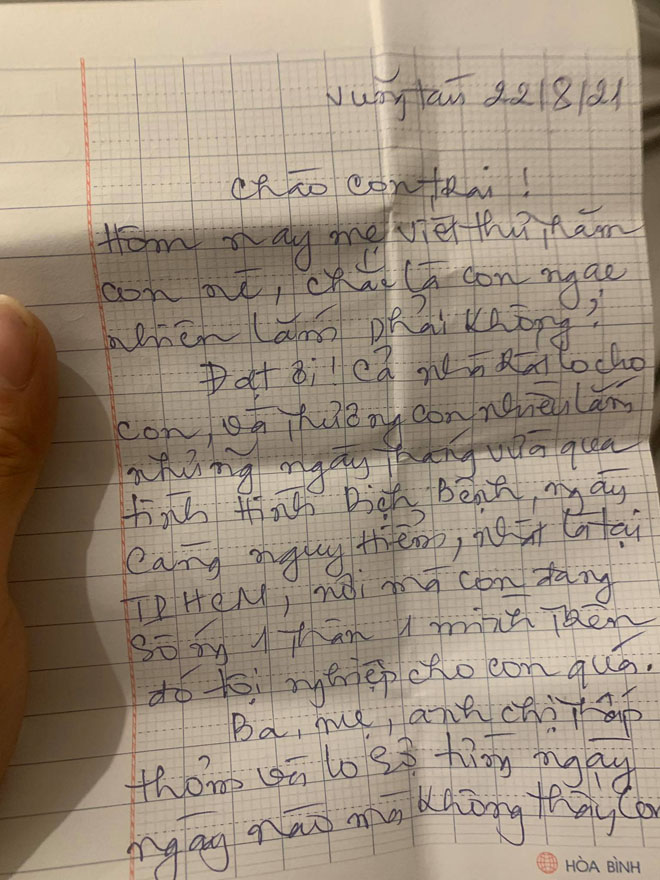 Vũng tàu 22/8/21
Chào con trai!
Hôm nay mẹ viết thư thăm
con nè, chắc là con ngạc
nhiên lắm phải không?
Đạt ơi! Cả nhà rất lo cho
con, và thương con nhiều lắm
những ngày tháng vừa qua
tình hình Dịch Bệnh, ngày
càng nguy hiểm, nhất là tại
TPHCM, nơi mà con đang
sống 1 thân 1 mình trên
đó tội nghiệp cho con quá.
Ba, mẹ, anh chị thấp
thỏm và lo sợ từng ngày
ngày nào mà không thấy con
HÒA BÌNH